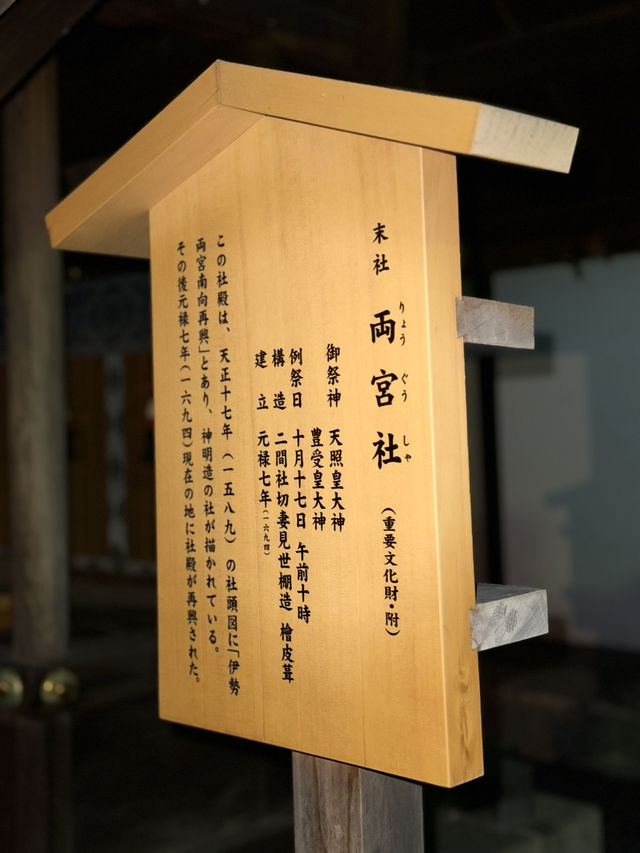 末社 両宮社 (重要文化財・附)
りょうぐうしゃ
御祭神 天照皇大神
豊受皇大神
例祭日 十月十七日 午前十時
構造 二間社切妻見世棚造 檜皮葺
建立 元禄七年(一六九四)
この社殿は、天正十七年(一五八九)の社頭図に「伊勢
両宮南向再興」とあり、神明造の社が描かれている。
その後元禄七年(一六九四)現在の地に社殿が再興された。